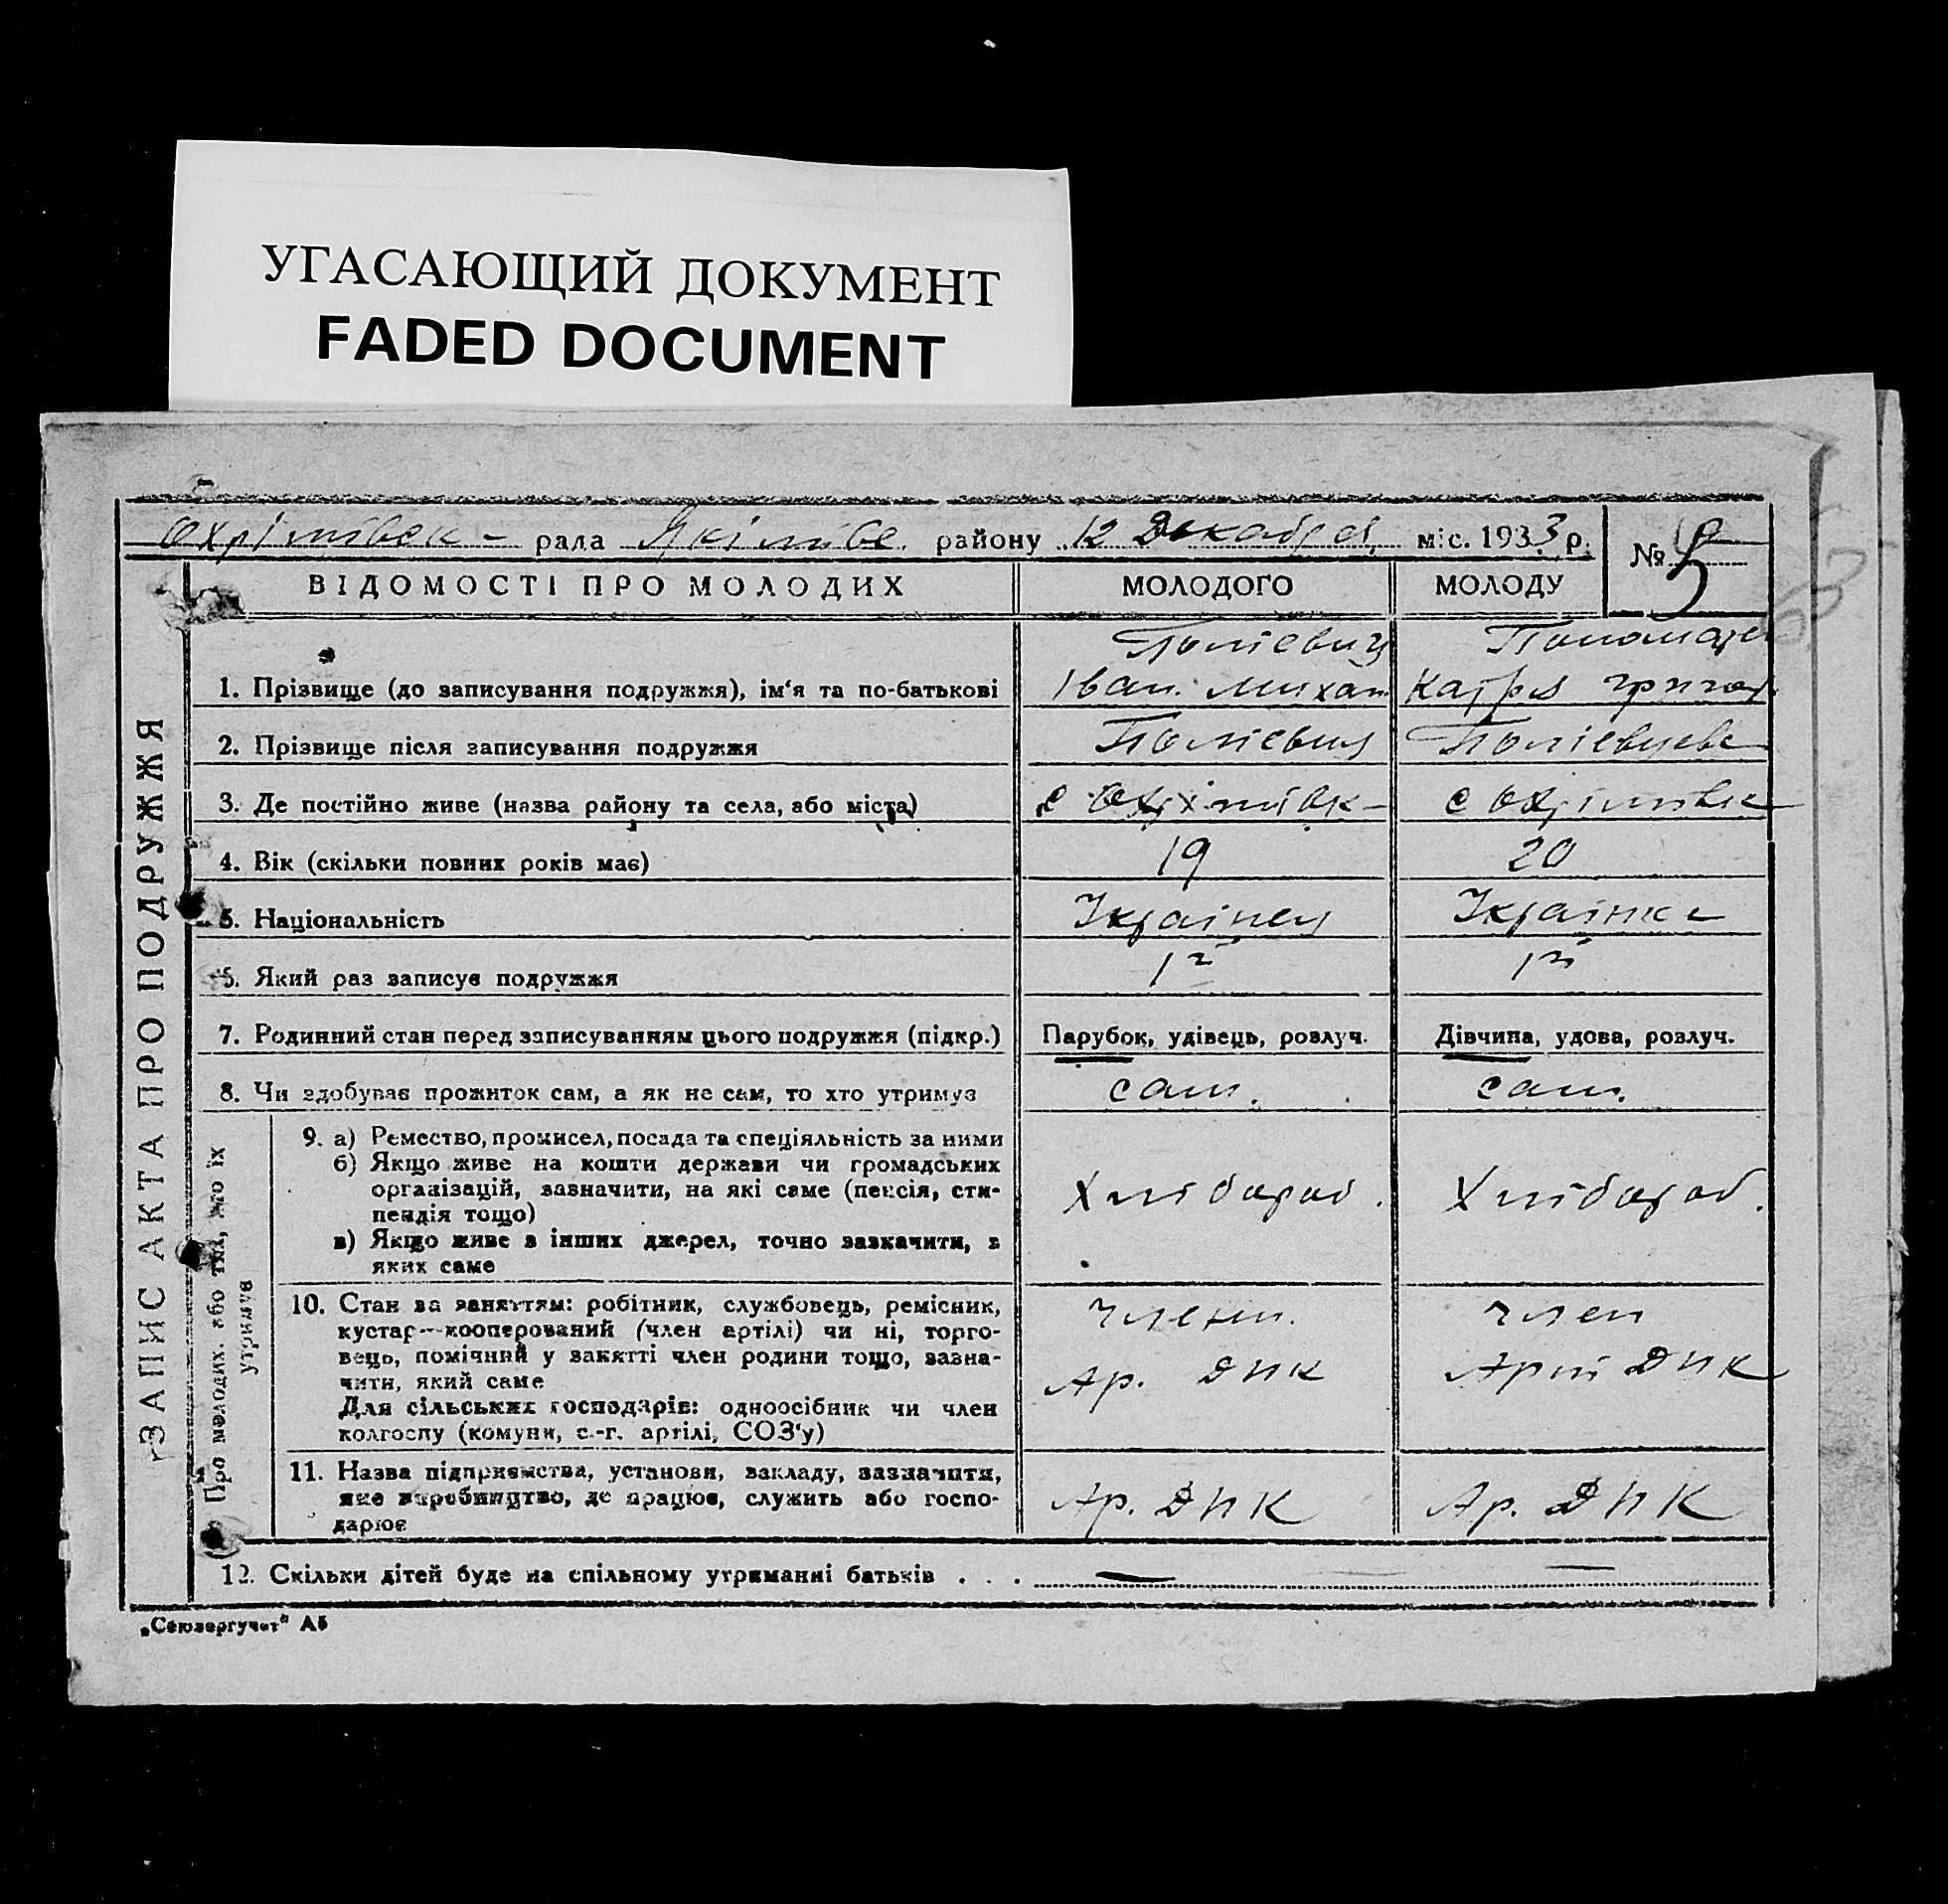 УГАСАЮЩИЙ ДОКУМЕНТ
FADED DOCUMENT
Охрімівск - рада Якімівс. району 12 Декабря міс. 1933 р. № 5
ЗАПИС АКТА ПРО ПОДРУЖЖЯ
ВІДОМОСТІ ПРО МОЛОДИХ МОЛОДОГО МОЛОДУ
1. Прізвище (до записування подружжя), ім'я та по-батькові
Іван. Михай
Катря Григор
2. Прізвище після записування подружжя
3. Де постійно живе (назва району та села, або міста) с Охрімівк- с Охрімівк
4. Вік (скільки повних років має) 19 20
5. Національність Українец Українка
6. Який раз записує подружжя 1й 1й
7. Родинний стан перед записуванням цього подружжя (підкр.) Парубок, удівець, розлуч. Дівчина, удова, розлуч.
8. Чи здобуває прожиток сам, а як не сам, то хто утримує сам. сам.
Про молодих, або тих, хто їх утримує
9. а) Ремество, промисел, посада та спеціяльність за ними
б) Якщо живе на кошти держави чи громадських
організацій, зазначити, на які саме (пенсія, сти-
пендія тощо)
в) Якщо живе з інших джерел, точно зазначити, з
яких саме
Хлібород. Хлібород.
10. Стан за заняттям: робітник, службовець, ремісник,
кустар—кооперований (член артілі) чи ні, торго-
вець, помічний у занятті член родини тощо, зазна-
чити, який саме
Для сільських господарів: одноосібник чи член
колгоспу (комуни, с.-г. артілі, СОЗ'у)
Член.
Ар. ДНК
Член
Арт ДНК
11. Назва підприємства, установи, закладу, зазначити,
яке виробництво, де працює, служить або госпо-
дарює
Ар. ДНК Ар. ДНК
12. Скільки дітей буде на спільному утриманні батьків . . . — —
„Союзоргучет" А5